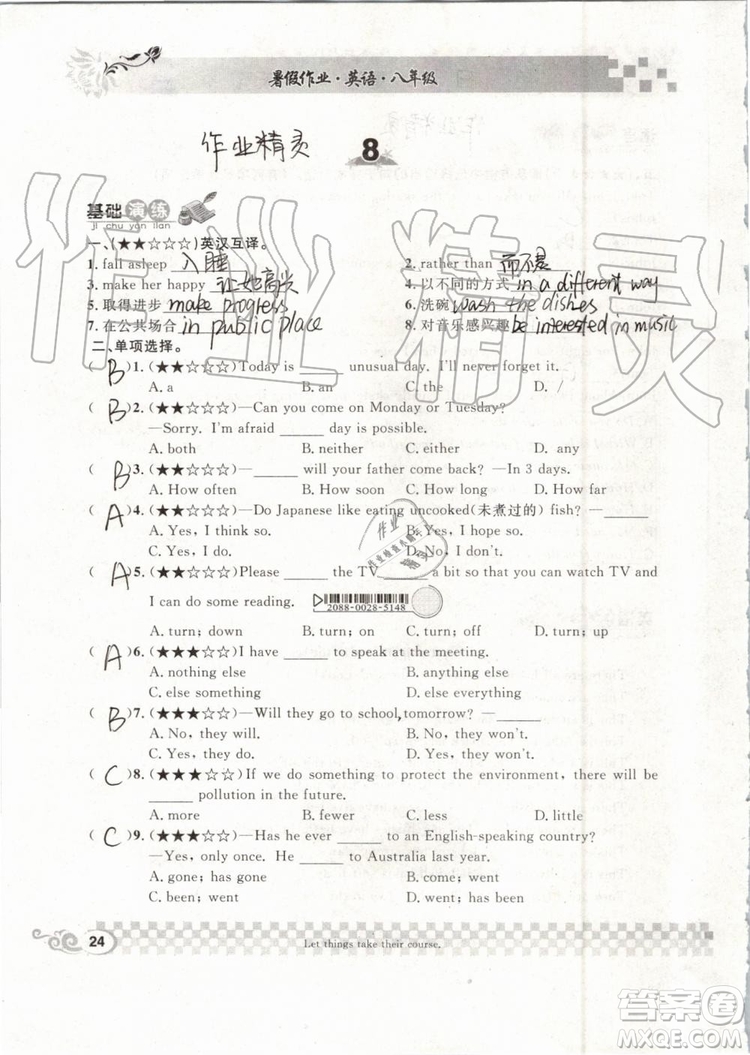 暑假作业·英语·八年级
作业精灵
8
基础演练
ji chu yan lian
一、(★★☆☆☆)英汉互译。
1. fall asleep 入睡 2. rather than 而不是
3. make her happy 让她高兴 4. 以不同的方式 in a different way
5. 取得进步 make progress 6. 洗碗 wash the dishes
7. 在公共场合 in public place 8. 对音乐感兴趣 be interested in music
二、单项选择。
( B )1. (★★☆☆☆)Today is ______ unusual day. I'll never forget it.
A. a B. an C. the D. /
( B )2. (★★☆☆☆)—Can you come on Monday or Tuesday?
—Sorry. I'm afraid ______ day is possible.
A. both B. neither C. either D. any
( B )3. (★★☆☆☆)—______ will your father come back? —In 3 days.
A. How often B. How soon C. How long D. How far
( A )4. (★★☆☆☆)—Do Japanese like eating uncooked(未煮过的) fish? —______
A. Yes, I think so. B. Yes, I hope so.
C. Yes, I do. D. No, I don't.
( A )5. (★★☆☆☆)Please ______ the TV ______ a bit so that you can watch TV and
I can do some reading. 2088-0028-5148
A. turn; down B. turn; on C. turn; off D. turn; up
( A )6. (★★★☆☆)I have ______ to speak at the meeting.
A. nothing else B. anything else
C. else something D. else everything
( B )7. (★★★☆☆)—Will they go to school, tomorrow? —______
A. No, they will. B. No, they won't.
C. Yes, they do. D. Yes, they won't.
( C )8. (★★★☆☆)If we do something to protect the environment, there will be
______ pollution in the future.
A. more B. fewer C. less D. little
( C )9. (★★★☆☆)—Has he ever ______ to an English-speaking country?
—Yes, only once. He ______ to Australia last year.
A. gone; has gone B. come; went
C. been; went D. went; has been
24
Let things take their course.
作业精灵
答案圈
MXQE.COM